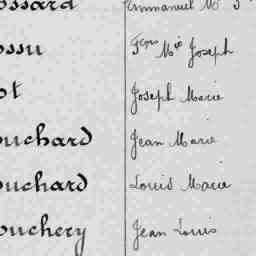 ossard Emmanuel M
ossu Fçois Mie Joseph
ot Joseph Marie
ouchard Jean Marie
ouchard Louis Marie
ouchery Jean Louis